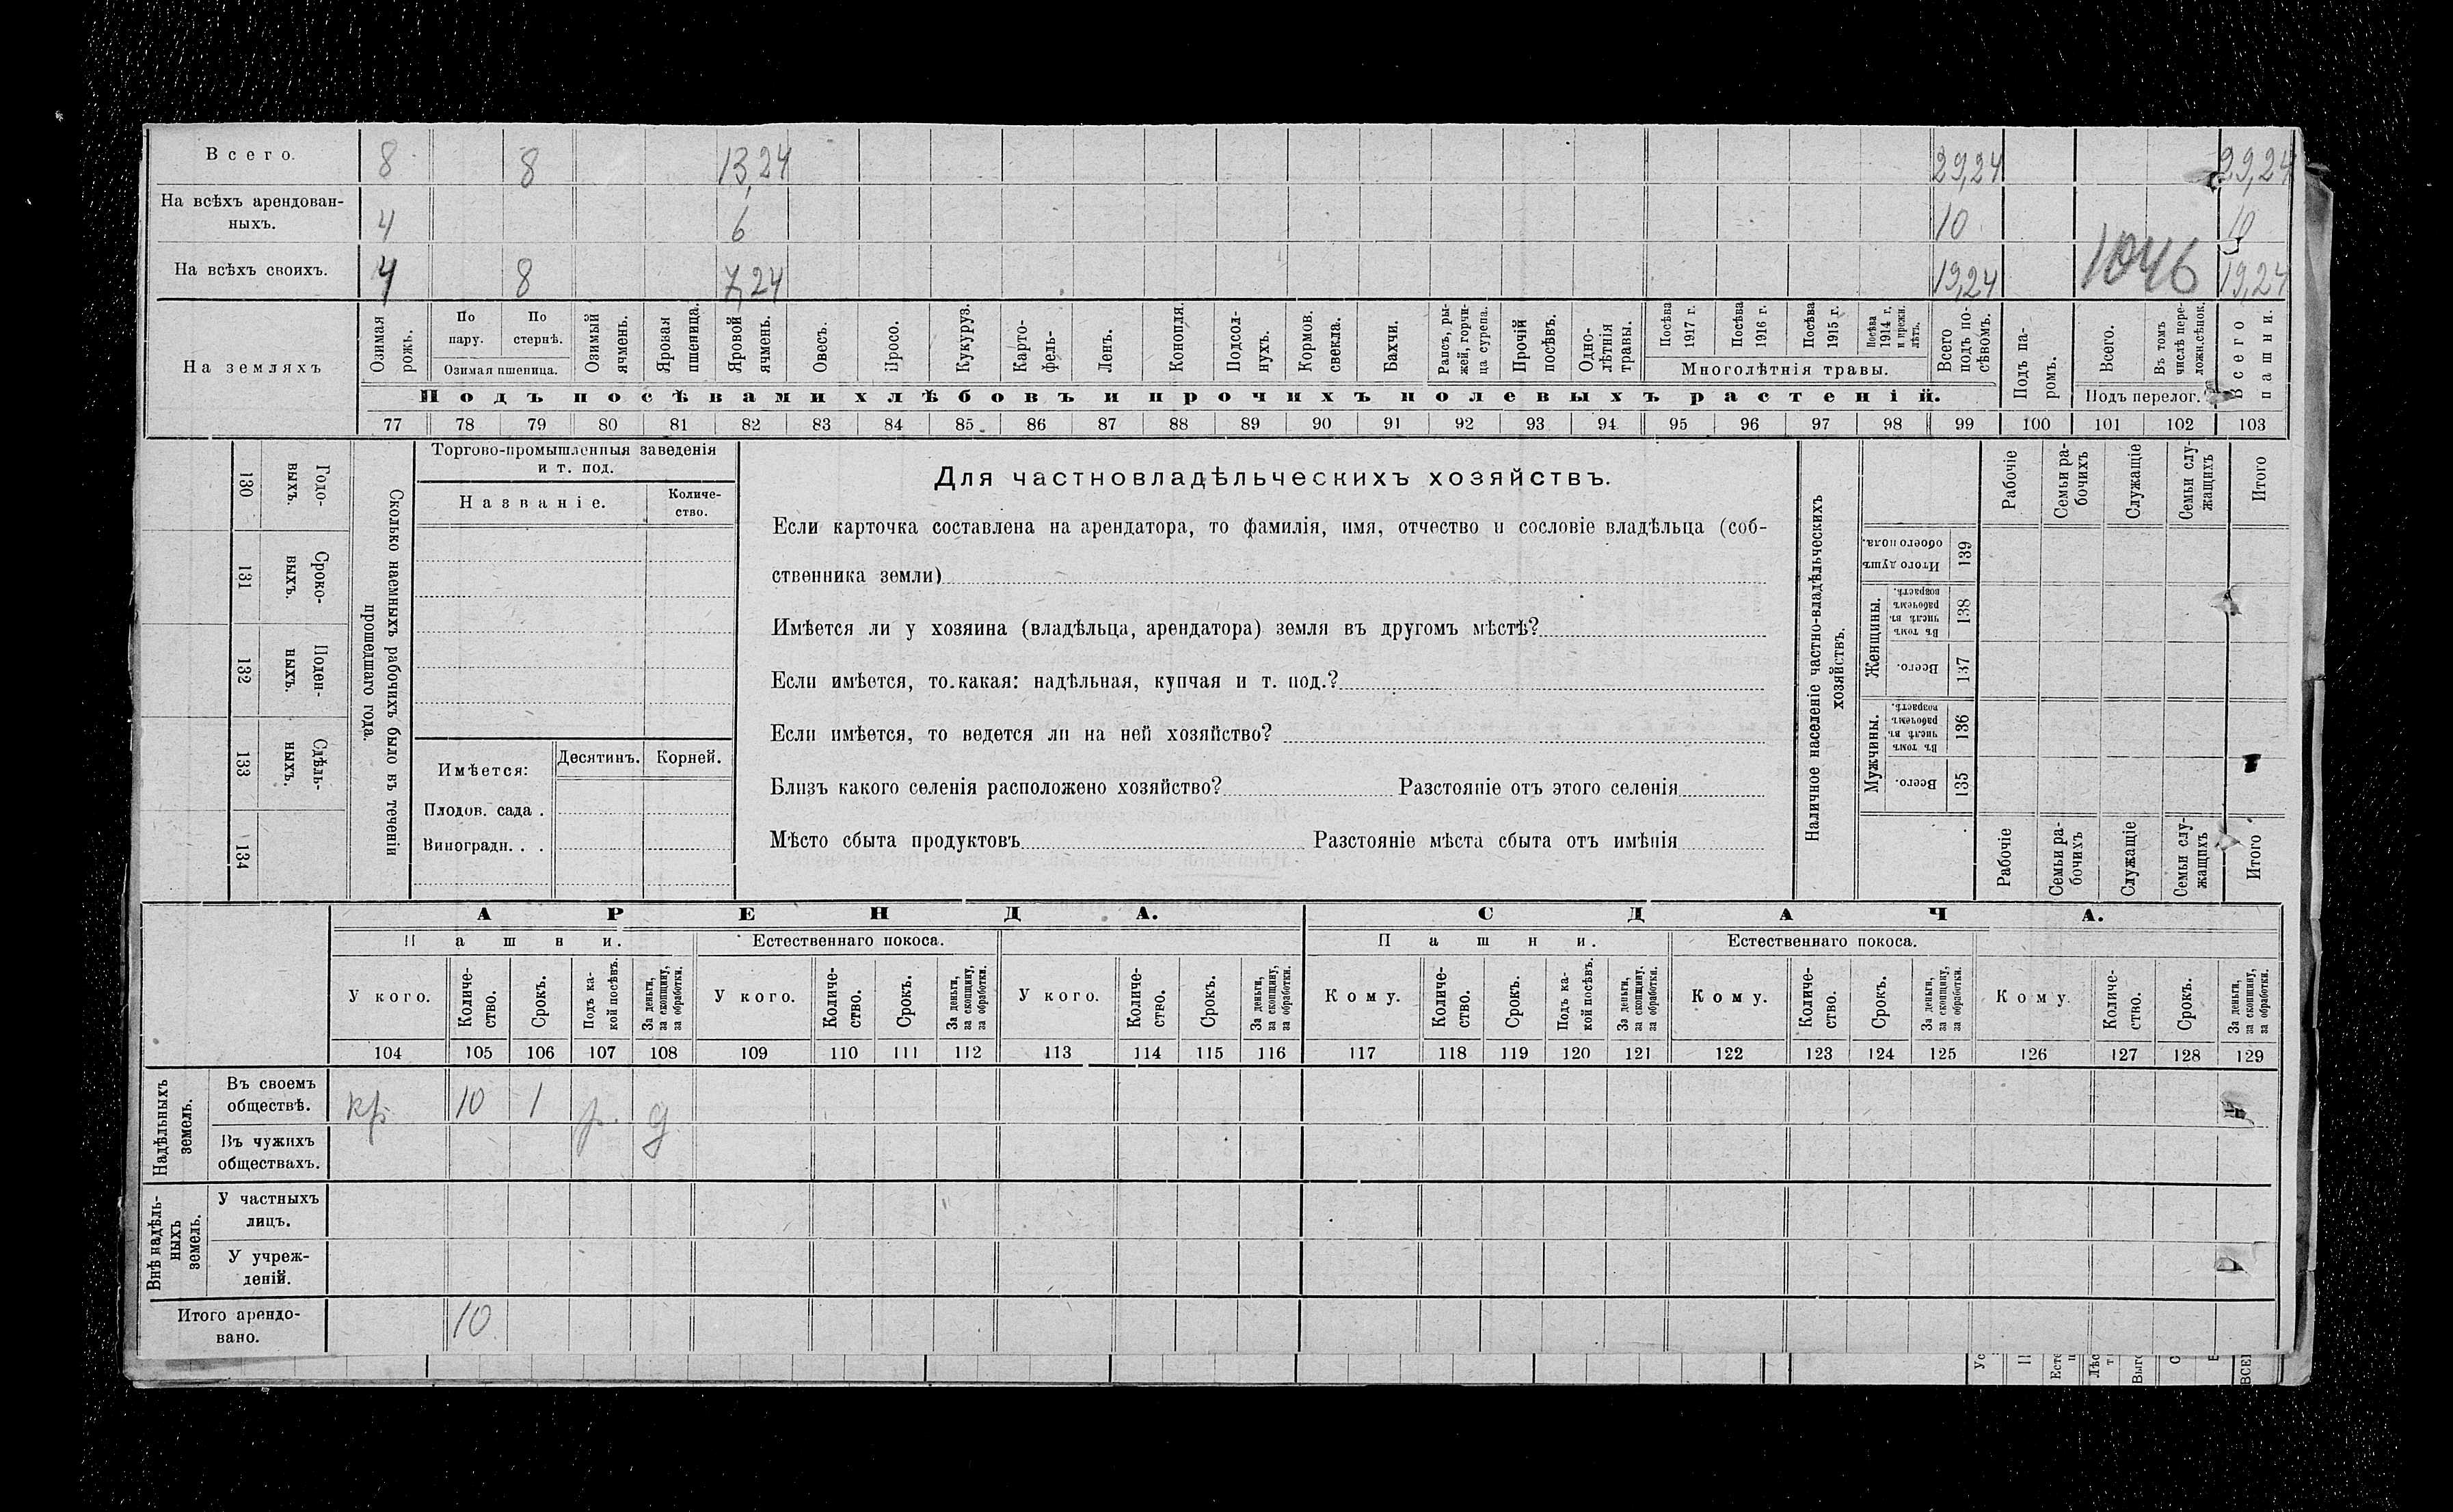 Всего. 8 8 13,24 29,24 29,24
На всѣхъ арендован-
ныхъ. 4 6 10 10
На всѣхъ своихъ. 4 8 7,24 19,24 1046 19,24
На земляхъ
Озимая рожь.
По пару.
По стернѣ.
Озимая пшеница.
Озимый ячмень.
Яровая пшеница.
Яровой ячмень.
Овесъ.
Просо.
Кукуруз.
Карто-
фель-
Ленъ.
Конопля.
Подсол-
нухъ.
Кормов. свекла.
Бахчи.
Рапсъ, ры-
жей, горчи-
ца сурепа.
Прочій посѣвъ.
Одно-
лѣтнія травы.
Посѣва 1917 г.
Посѣва 1916 г.
Посѣва 1915 г.
Посѣва 1914 г. и прежн. лѣтъ.
Многолѣтнія травы.
Всего подъ по-
сѣвомъ.
Подъ па-
ромъ.
Всего.
Въ томъ числѣ пере-
ложн.сѣнок.
Подъ перелог.
Всего пашни.
Подъ посѣвами хлѣбовъ и прочихъ полевыхъ растеній.
77 78 79 80 81 82 83 84 85 86 87 88 89 90 91 92 93 94 95 96 97 98 99 100 101 102 103
130 Годо-
выхъ.
131 Сроко-
выхъ.
132 Поден-
ныхъ.
133 Сдѣль-
ныхъ.
134
Сколько наемныхъ рабочихъ было въ теченіи
прошедшаго года.
Торгово-промышленныя заведенія
и т. под.
Названіе.
Количе-
ство.
Имѣется: Десятинъ. Корней.
Плодов. сада .
Виноградн. . .
Для частновладѣльческихъ хозяйствъ.
Если карточка составлена на арендатора, то фамилія, имя, отчество и сословіе владѣльца (соб-
ственника земли)
Имѣется ли у хозяина (владѣльца, арендатора) земля въ другомъ мѣстѣ?
Если имѣется, то какая: надѣльная, купчая и т. под.?
Если имѣется, то ведется ли на ней хозяйство?
Близъ какого селенія расположено хозяйство? Разстояніе отъ этого селенія
Мѣсто сбыта продуктовъ Разстояніе мѣста сбыта отъ имѣнія
Наличное населеніе частно-владѣльческихъ
хозяйствъ.
Рабочіе
Семьи ра-
бочихъ
Служащіе
Семьи слу-
жащихъ
Итого
Итого душъ обоего пола. 139
Женщины.
Въ томъ числѣ въ рабочемъ возрастѣ. 138
Всего. 137
Мужчины.
Въ томъ числѣ въ рабочемъ возрастѣ. 136
Всего. 135
Рабочіе
Семьи ра-
бочихъ
Служащіе
Семьи слу-
жащихъ
Итого
АРЕНДА. СДАЧА.
Пашни. Естественнаго покоса. Пашни. Естественнаго покоса.
У кого.
Количе-
ство.
Срокъ.
Подъ ка-
кой посѣвъ.
За деньги, за скопщину, за обработки.
У кого.
Количе-
ство.
Срокъ.
За деньги, за скопщину, за обработки.
У кого.
Количе-
ство.
Срокъ.
За деньги, за скопщину, за обработки.
Кому.
Количе-
ство.
Срокъ.
Подъ ка-
кой посѣвъ.
За деньги, за скопщину, за обработки.
Кому.
Количе-
ство.
Срокъ.
За деньги, за скопщину, за обработки.
Кому.
Количе-
ство.
Срокъ.
За деньги, за скопщину, за обработки.
104 105 106 107 108 109 110 111 112 113 114 115 116 117 118 119 120 121 122 123 124 125 126 127 128 129
Надѣльныхъ земель.
Въ своемъ
обществѣ. кр 10 1 р. д
Въ чужихъ
обществахъ.
Внѣ надѣль-
ныхъ земель.
У частныхъ
лицъ.
У учреж-
деній.
Итого арендо-
вано. 10